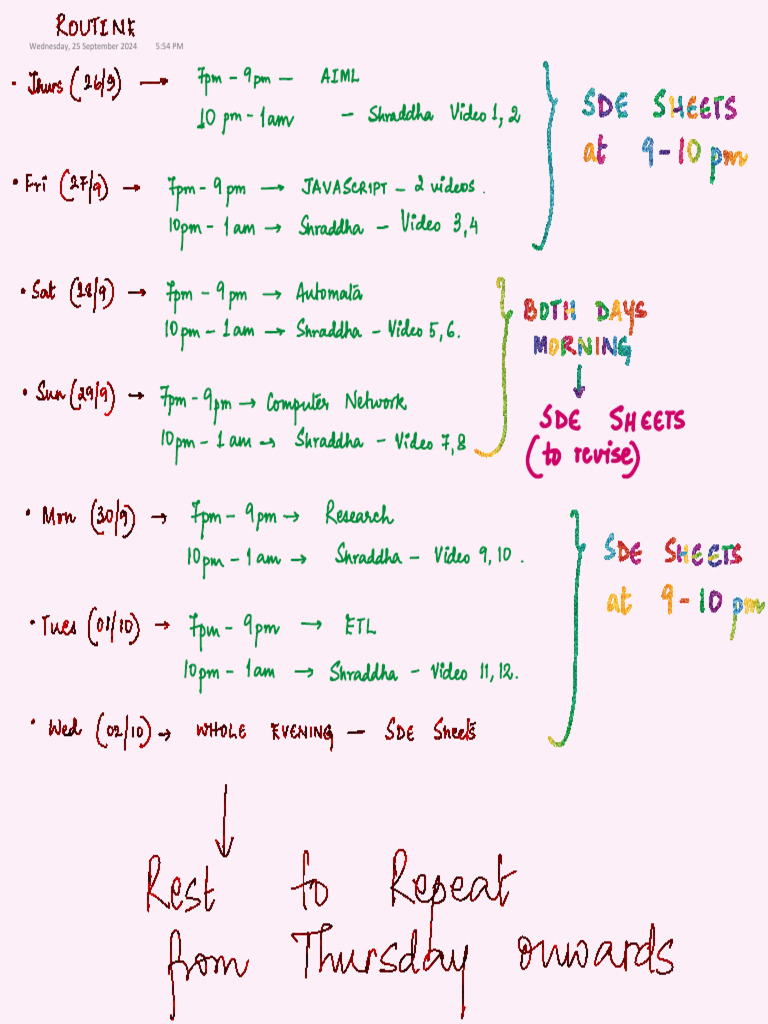 ROUTINE
Wednesday, 25 September 2024 5:54 PM
• Thurs (26/9) → 7pm - 9pm — AIML
10 pm - 1am - Shraddha Video 1, 2
SDE SHEETS
at 9-10 pm
• Fri (27/9) → 7pm - 9 pm → JAVASCRIPT - 2 videos.
10pm - 1 am → Shraddha - Video 3,4
• Sat (28/9) → 7pm - 9 pm → Automata
10 pm - 1 am → Shraddha - Video 5, 6.
BOTH DAYS
MORNING
↓
SDE SHEETS
(to revise)
• Sun (29/9) → 7pm - 9pm → Computer Network
10pm - 1 am → Shraddha - Video 7,8
• Mon (30/9) → 7pm - 9pm → Research
10pm - 1 am → Shraddha - Video 9, 10 .
SDE SHEETS
at 9-10 pm
• Tues (01/10) → 7pm - 9pm → ETL
10pm - 1am → Shraddha - Video 11, 12.
• Wed (02/10) → WHOLE EVENING — SDE Sheets
↓
Rest to Repeat
from Thursday onwards